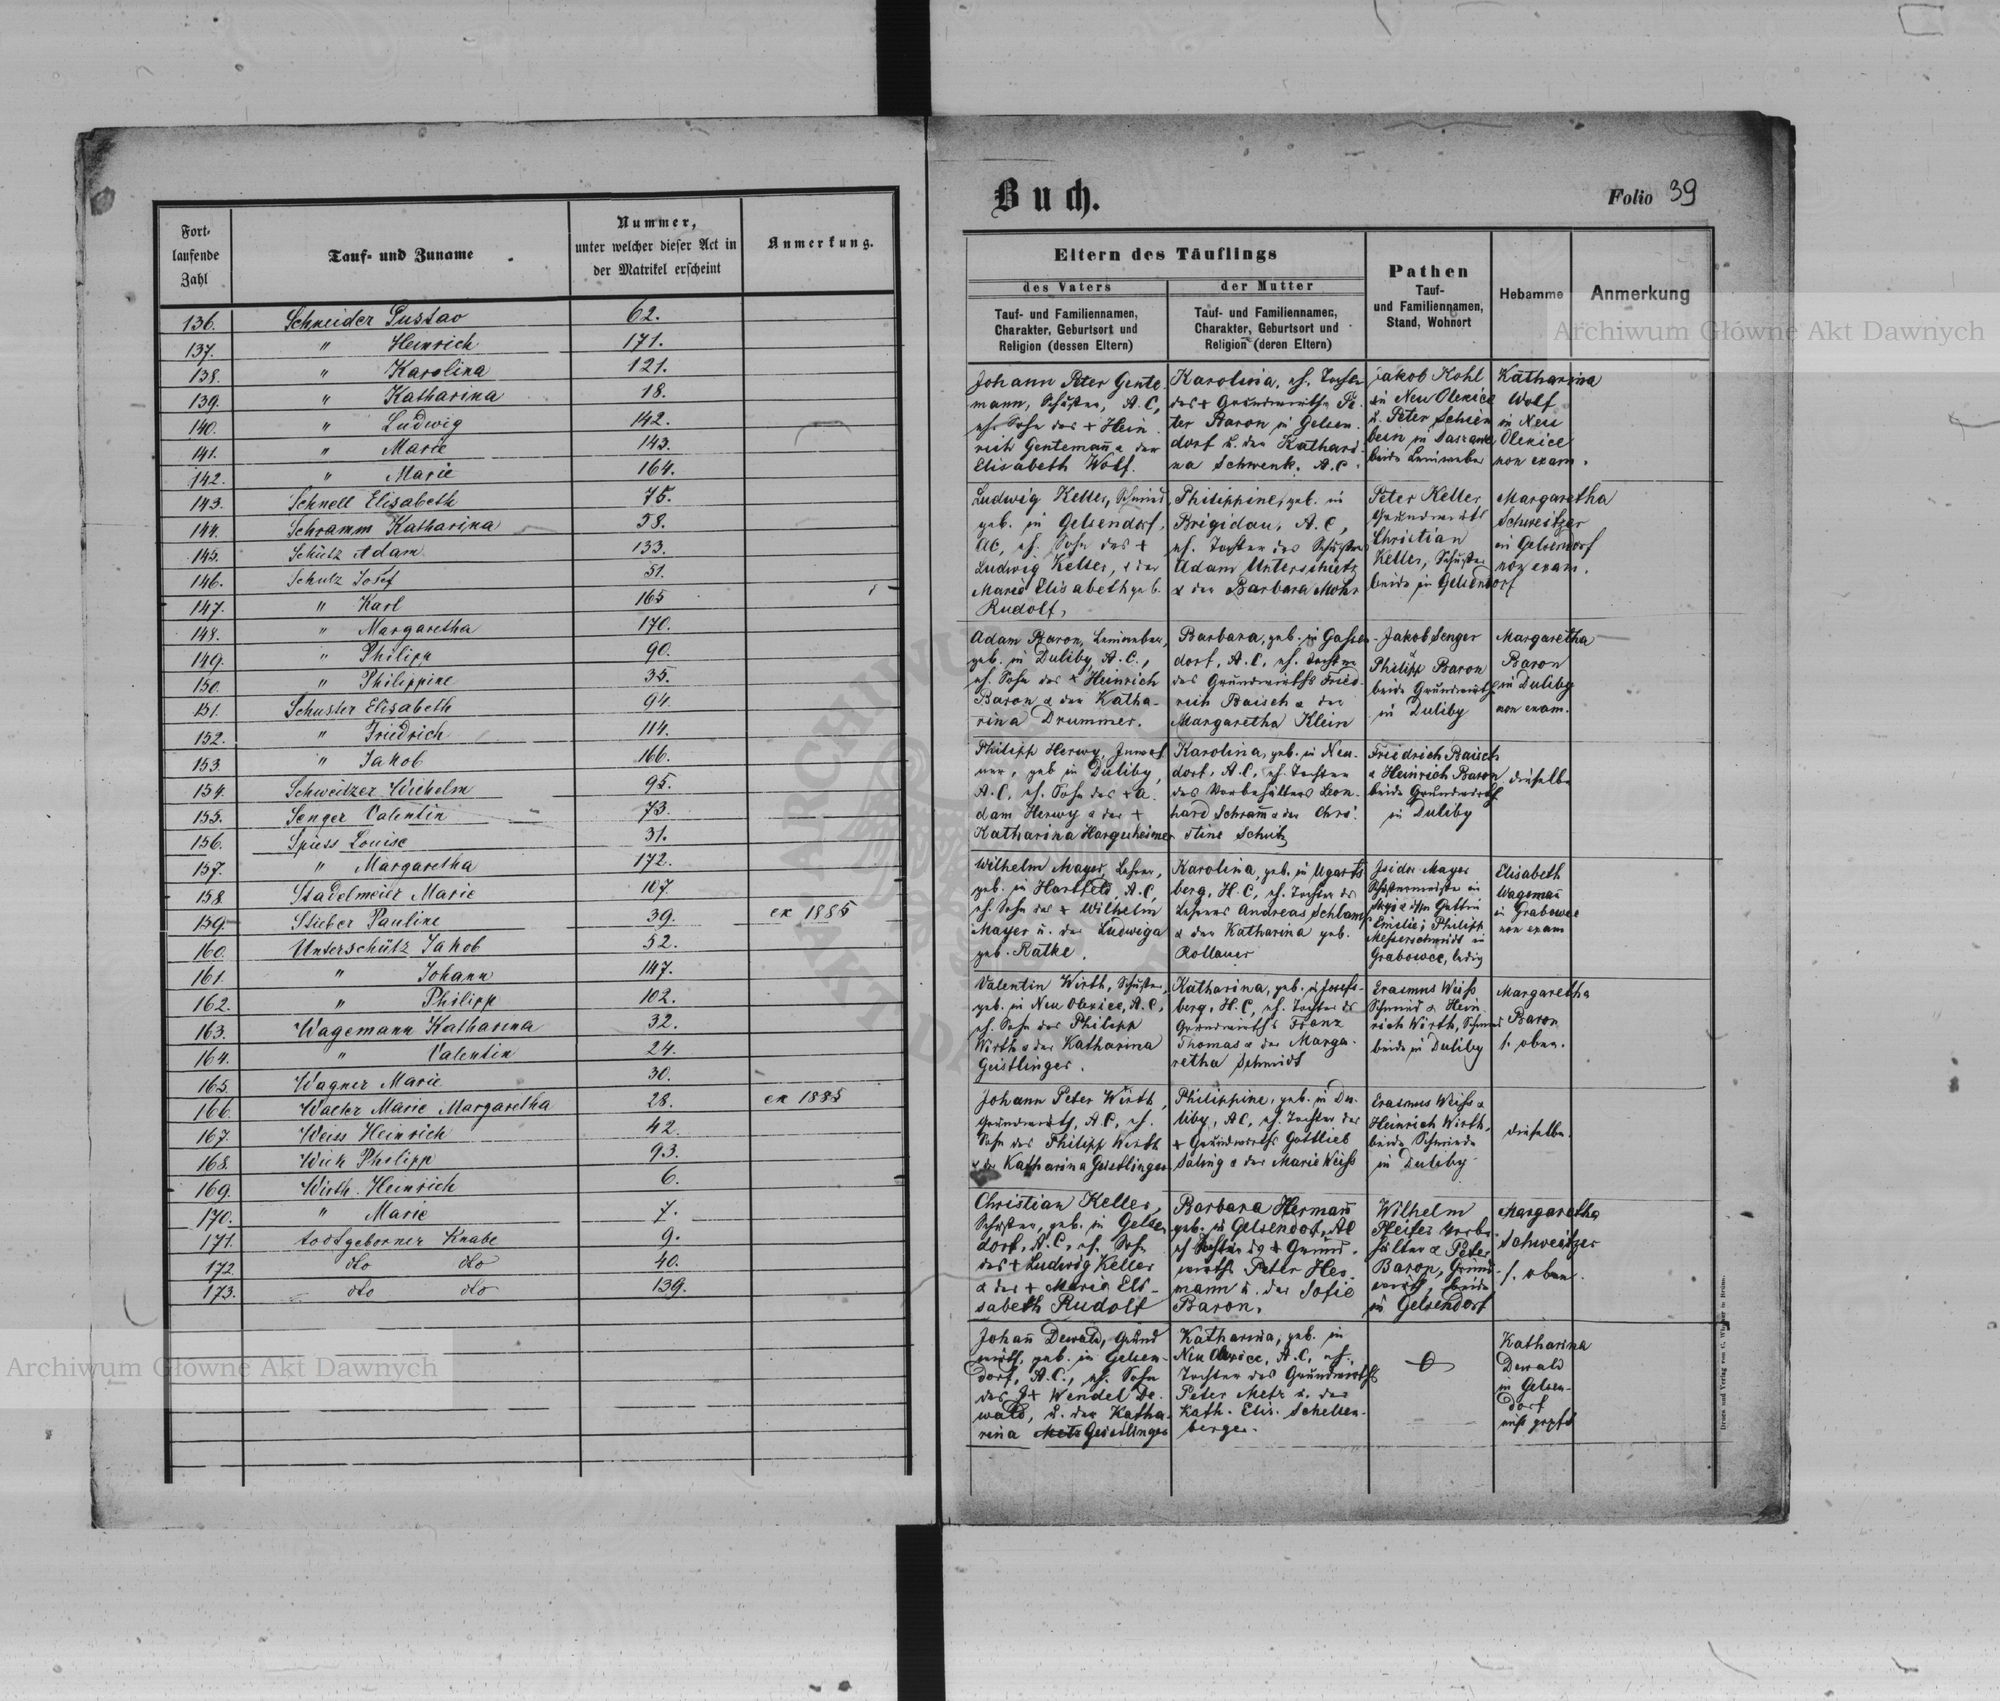 Fort-
laufende
Zahl
Tauf- und Zuname
Nummer,
unter welcher dieser Act in
der Matrikel erscheint
Anmerkung.
136. Schneider Gustav 62.
137. " Heinrich 171.
138. " Karolina 121.
139. " Katharina 18.
140. " Ludwig 142.
141. " Marie 143.
142. " Marie 164.
143. Schnell Elisabeth 75.
144. Schramm Katharina 58.
145. Schütz Adam 133.
146. Schulz Josef 51.
147. " Karl 165
148. " Margaretha 170.
149. " Philipp 90.
150. " Philippine 35.
151. Schuster Elisabeth 94.
152. " Friedrich 114.
153. " Jakob 166.
154. Schweitzer Wilhelm 95.
155. Senger Valentin 73.
156. Spiess Louise 31.
157. " Margaretha 172.
158. Stadelmeier Marie 107.
159. Stieber Pauline 39. ex 1885
160. Unterschütz Jakob 52.
161. " Johann 147.
162. " Philipp 102.
163. Wagemann Katharina 32.
164. " Valentin 24.
165. Wagner Marie 30.
166. Walter Marie Margaretha 28. ex 1885
167. Weiss Heinrich 42.
168. Wick Philipp 93.
169. Wirth Heinrich 6.
170. " Marie 7.
171. todtgeborner Knabe 9.
172. dto dto 40.
173. dto dto 139.
Archiwum Główne Akt Dawnych
Buch.
Folio 39
Eltern des Täuflings
des Vaters
Tauf- und Familiennamen,
Charakter, Geburtsort und
Religion (dessen Eltern)
der Mutter
Tauf- und Familiennamen,
Charakter, Geburtsort und
Religion (deren Eltern)
Pathen
Tauf-
und Familiennamen,
Stand, Wohnort
Hebamme
Anmerkung
Archiwum Główne Akt Dawnych
Johann Peter Gente-
mann, Schuster, A.C,
eh. Sohn des + Hein
rich Gentemañ & der
Elisabeth Wolf.
Karolina, eh. Tochter
des + Grundwirths Pe-
ter Baron in Gelsen-
dorf u. der Kathari-
na Schwenk. A.C.
Jakob Kohl
in Neu Olexice
u. Peter Schien
bein in
beide Leinweber
Katharina
Wolf
in Neu
Olexice
non exam.
Ludwig Keller, Schmid
geb. in Gelsendorf,
AC, eh. Sohn des +
Ludwig Keller, & der
Marie Elisabeth geb.
Rudolf,
Philippine, geb. in
Brigidau, A.C,
eh. Tochter des Schusters
Adam Unterschütz
& der Barbara Mohr
Peter Keller
Grundwirth
Christian
Keller, Schuster
beide in Gelsendorf
Margaretha
Schweitzer
in Gelsendorf
non exam.
Adam Baron, Leinweber,
geb. in Duliby, A.C.,
eh. Sohn des + Heinrich
Baron & der Katha-
rina Drummer.
Barbara, geb. in Gassen-
dorf, A.C, eh. Tochter
des Grundwirths Fried-
rich Baisch & der
Margaretha Klein
Jakob Senger
&
Philipp Baron
beide Grundwirthe
in Duliby
Margaretha
Baron
in Duliby
non exam.
Philipp Herwy, Inwoh
ner, geb in Duliby,
A.C, eh. Sohn des + A-
dam Herwy & der +
Katharina Hargesheimer
Karolina, geb. in Neu-
dorf, A.C, eh. Tochter
des Vorbehälters Leon-
hard Schramm & der Chri-
stine Schutz
Friedrich Baisch
& Heinrich Baron
beide Grundwirthe
in Duliby
dieselbe
Wilhelm Mayer, Lehrer,
geb. in Hartfeld A.C,
eh. Sohn des + Wilhelm
Mayer u. der Ludwiga
geb. Ratke.
Karolina, geb. in Ugarts
berg, H.C, eh. Tochter des
Lehrers Andreas Schlamp
& der Katharina geb.
Rollauer
Isidor Mayer
Schustermeister in
Stryj & dssn Gattin
Emilie; Philipp
Messerschmidt in
Grabowce, ledig
Elisabeth
Wagemañ
in Grabowce
non exam
Valentin Wirth, Schuster,
geb. in Neu Olexice, A.C,
eh. Sohn des Philipp
Wirth & der Katharina
Geistlinger.
Katharina, geb. in Josefs-
berg, H.C, eh. Tochter des
Grundwirths Franz
Thomas & der Marga-
retha Schmidt
Erasmus Weiss
Schmied & Hein-
rich Wirth, Schmied
beide in Duliby
Margaretha
Baron
s. oben.
Johann Peter Wirth,
Grundwirth, A.C, eh.
Sohn des Philipp Wirth
& der Katharina Geistlinger
Philippine, geb. in Du-
liby, AC, eh. Tochter des
+ Grundwirths Gottlieb
Saling & der Marie Weiss
Erasmus Weiss &
Heinrich Wirth,
beide Schmiede
in Duliby
dieselbe.
Christian Keller,
Schuster, geb. in Gelsen
dorf, A.C, eh. Sohn
des + Ludwig Keller
& der + Maria Eli-
sabeth Rudolf
Barbara Hermañ
geb. in Gelsendorf, AC
eh Tochter des + Grund-
wirths Peter Her-
mann u. der Sofie
Baron.
Wilhelm
Pfeifer Vorbe-
hälter & Peter
Baron, Grund-
wirth, beide
in Gelsendorf
Margaretha
Schweitzer
s. oben.
Johañ Dewald, Grund
wirth, geb. in Gelsen-
dorf, A.C., eh. Sohn
des + Wendel De-
wald, u. der Katha-
rina Metz Geistlinger
Katharina, geb. in
Neu Olexice, A.C, eh.
Tochter des Grundwirths
Peter Metz u. der
Kath. Elis. Schellen-
berger.
Katharina
Dewald
in Gelsen-
dorf
nicht geprft